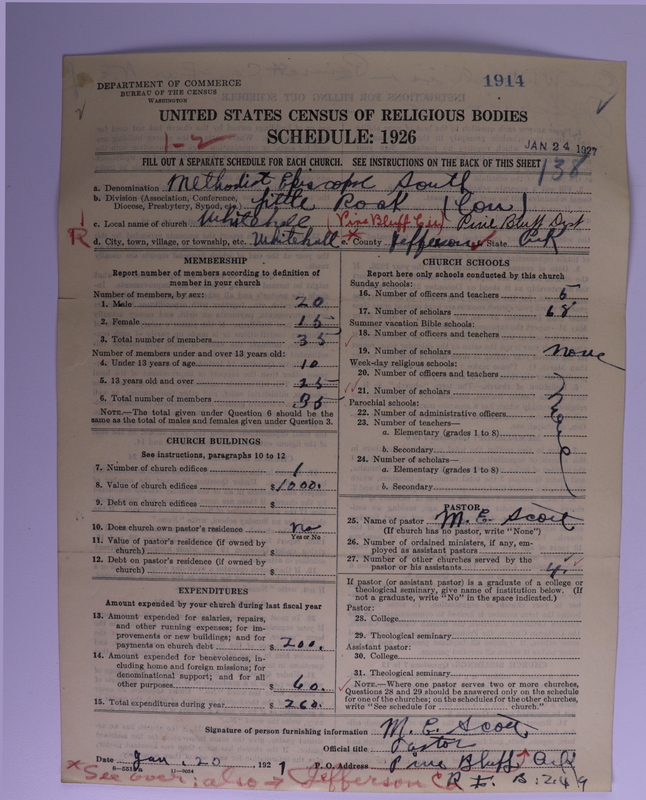 1914
DEPARTMENT OF COMMERCE
BUREAU OF THE CENSUS
WASHINGTON
UNITED STATES CENSUS OF RELIGIOUS BODIES
SCHEDULE: 1926
1-2
JAN 24 1927
138
FILL OUT A SEPARATE SCHEDULE FOR EACH CHURCH. SEE INSTRUCTIONS ON THE BACK OF THIS SHEET
a. Denomination Methodist Episcopal South
b. Division (Association, Conference, Diocese, Presbytery, Synod, etc.) Little Rock (Con)
c. Local name of church Whitehall (Pine Bluff Cir) Pine Bluff Dist
R
d. City, town, village, or township, etc. Whitehall e. County Jefferson State Ark
MEMBERSHIP
Report number of members according to definition of
member in your church
Number of members, by sex:
1. Male 20
2. Female 15
3. Total number of members 35
Number of members under and over 13 years old:
4. Under 13 years of age 10
5. 13 years old and over 25
6. Total number of members 35
NOTE.—The total given under Question 6 should be the
same as the total of males and females given under Question 3.
CHURCH BUILDINGS
See instructions, paragraphs 10 to 12
7. Number of church edifices 1
8. Value of church edifices $1000.
9. Debt on church edifices $
10. Does church own pastor's residence No
Yes or No
11. Value of pastor's residence (if owned by
church) $
12. Debt on pastor's residence (if owned by
church) $
EXPENDITURES
Amount expended by your church during last fiscal year
13. Amount expended for salaries, repairs,
and other running expenses; for im-
provements or new buildings; and for
payments on church debt $200.
14. Amount expended for benevolences, in-
cluding home and foreign missions; for
denominational support; and for all
other purposes $60.
15. Total expenditures during year $260.
CHURCH SCHOOLS
Report here only schools conducted by this church
Sunday schools:
16. Number of officers and teachers 5
17. Number of scholars 68
Summer vacation Bible schools:
18. Number of officers and teachers
19. Number of scholars none
Week-day religious schools:
20. Number of officers and teachers
21. Number of scholars
Parochial schools:
22. Number of administrative officers
23. Number of teachers—
a. Elementary (grades 1 to 8)
b. Secondary
24. Number of scholars—
a. Elementary (grades 1 to 8)
b. Secondary
none
PASTOR
25. Name of pastor M. E. Scott
(If church has no pastor, write "None")
26. Number of ordained ministers, if any, em-
ployed as assistant pastors
27. Number of other churches served by the
pastor or his assistants 4
If pastor (or assistant pastor) is a graduate of a college or
theological seminary, give name of institution below. (If
not a graduate, write "No" in the space indicated.)
Pastor:
28. College
29. Theological seminary
Assistant pastor:
30. College
31. Theological seminary
NOTE.—Where one pastor serves two or more churches,
Questions 28 and 29 should be answered only on the schedule
for one of the churches; on the schedules for the other churches,
write "See schedule for church."
Signature of person furnishing information M. E. Scott
Official title Pastor
Date Jan. 20, 1921 P. O. Address Pine Bluff Ark
*See over: also → Jefferson Co R F. B. 249